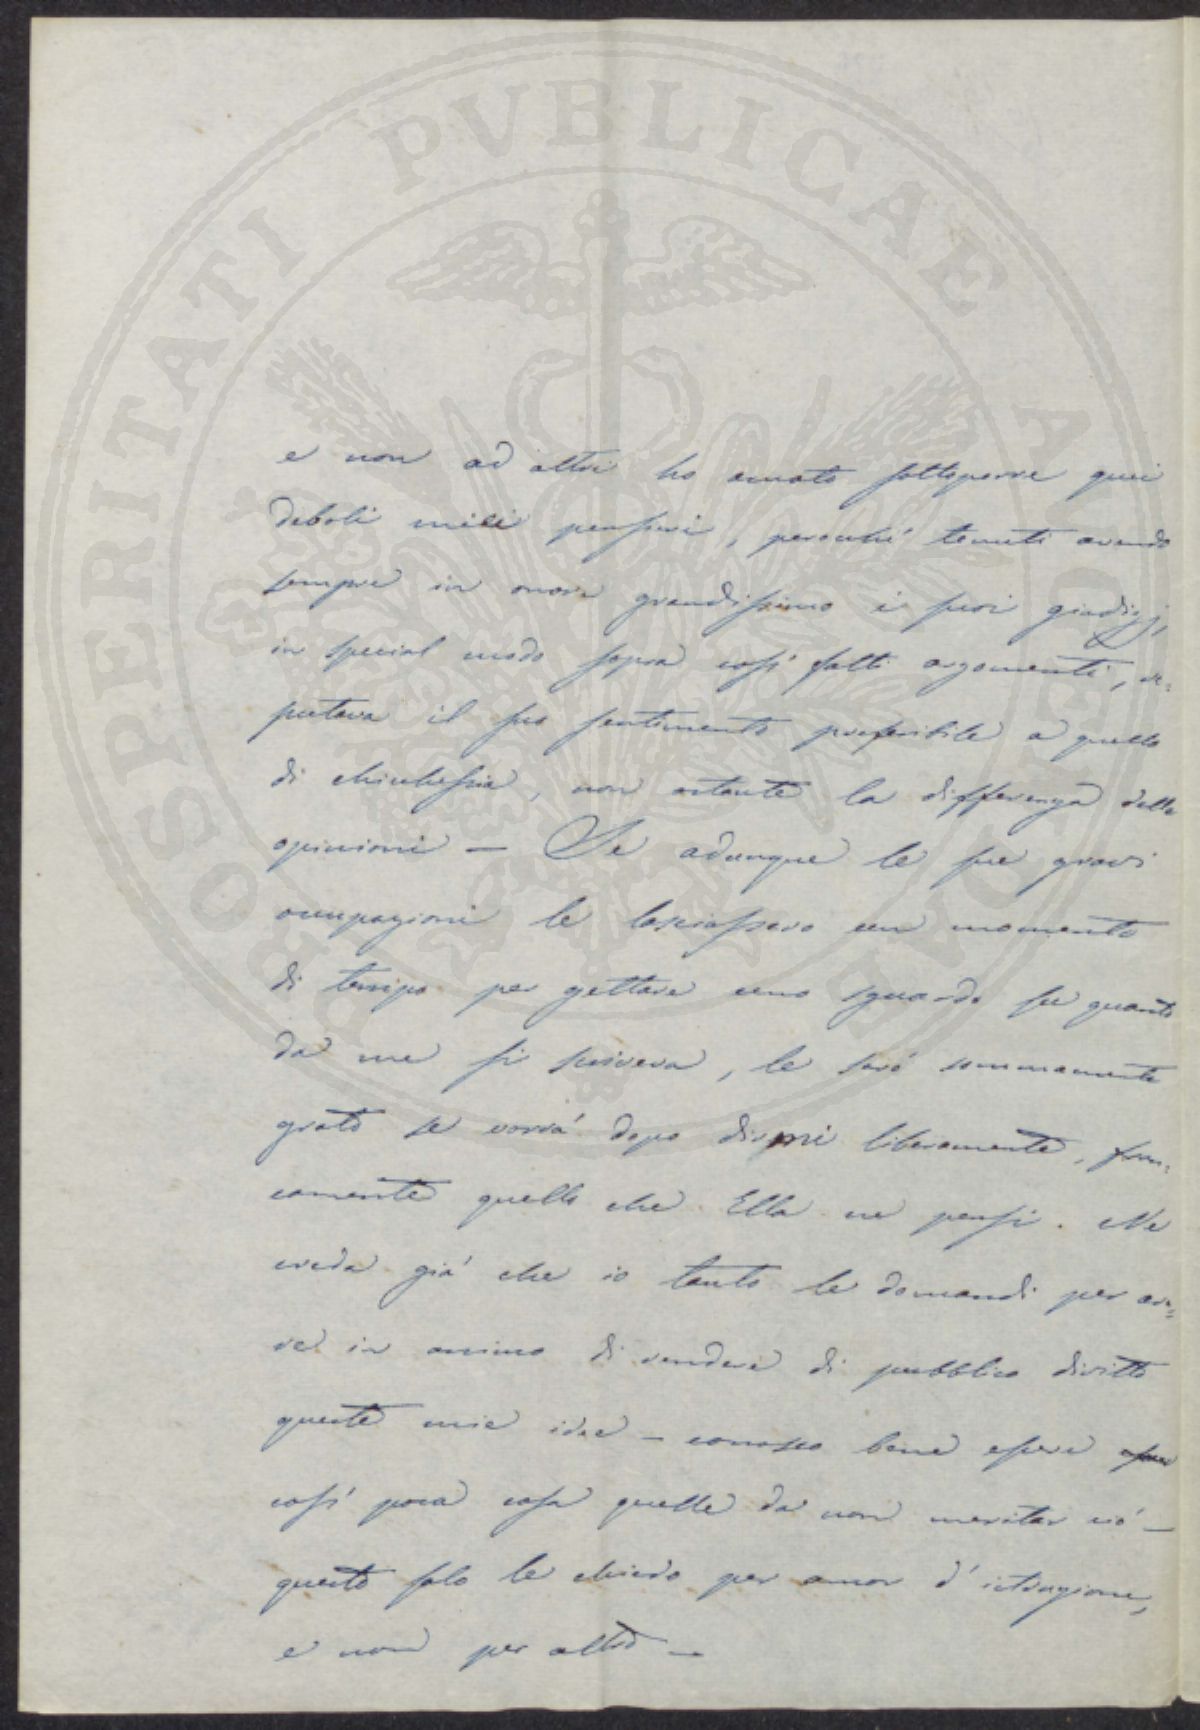 PROSPERITATI PVBLICAE AVGENDAE
e non ad altri ho amato sottoporre quei
deboli miei pensieri, perocché tenuti avendo
sempre in onore grandissimo i suoi giudizj,
in special modo sopra così fatti argomenti, re-
putava il suo sentimento preferibile a quello
di chichesia, non ostante la differenza delle
opinioni — Se adunque le sue gravi
occupazioni le lasciassero un momento
di tempo per gettare uno sguardo su quanto
da me si scriveva, le sarò sommamente
grato se vorrà dopo dirmi liberamente, fran-
camente quello che Ella ne pensi. Ne
creda già che io tanto le domandi per ave-
re in animo di rendere di pubblico diritto
queste mie idee — conosco bene essere
così poca cosa quelle da non meritar ciò —
questo solo le chiedo per amor d'istruzione,
e non per altro —